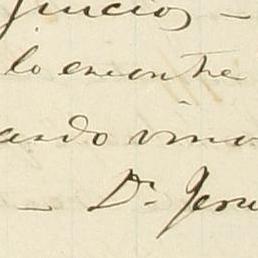 juicios –
lo encontre
ando vino
– Dr. Jern